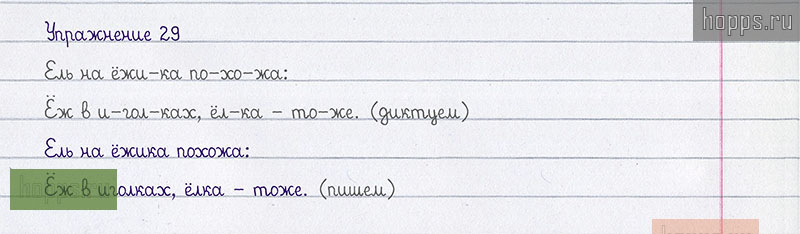 hopps.ru
Упражнение 29
Ель на ёжи-ка по-хо-жа:
Ёж в и-гол-ках, ёл-ка - то-же. (диктуем)
Ель на ёжика похожа:
Ёж в иголках, ёлка - тоже. (пишем)